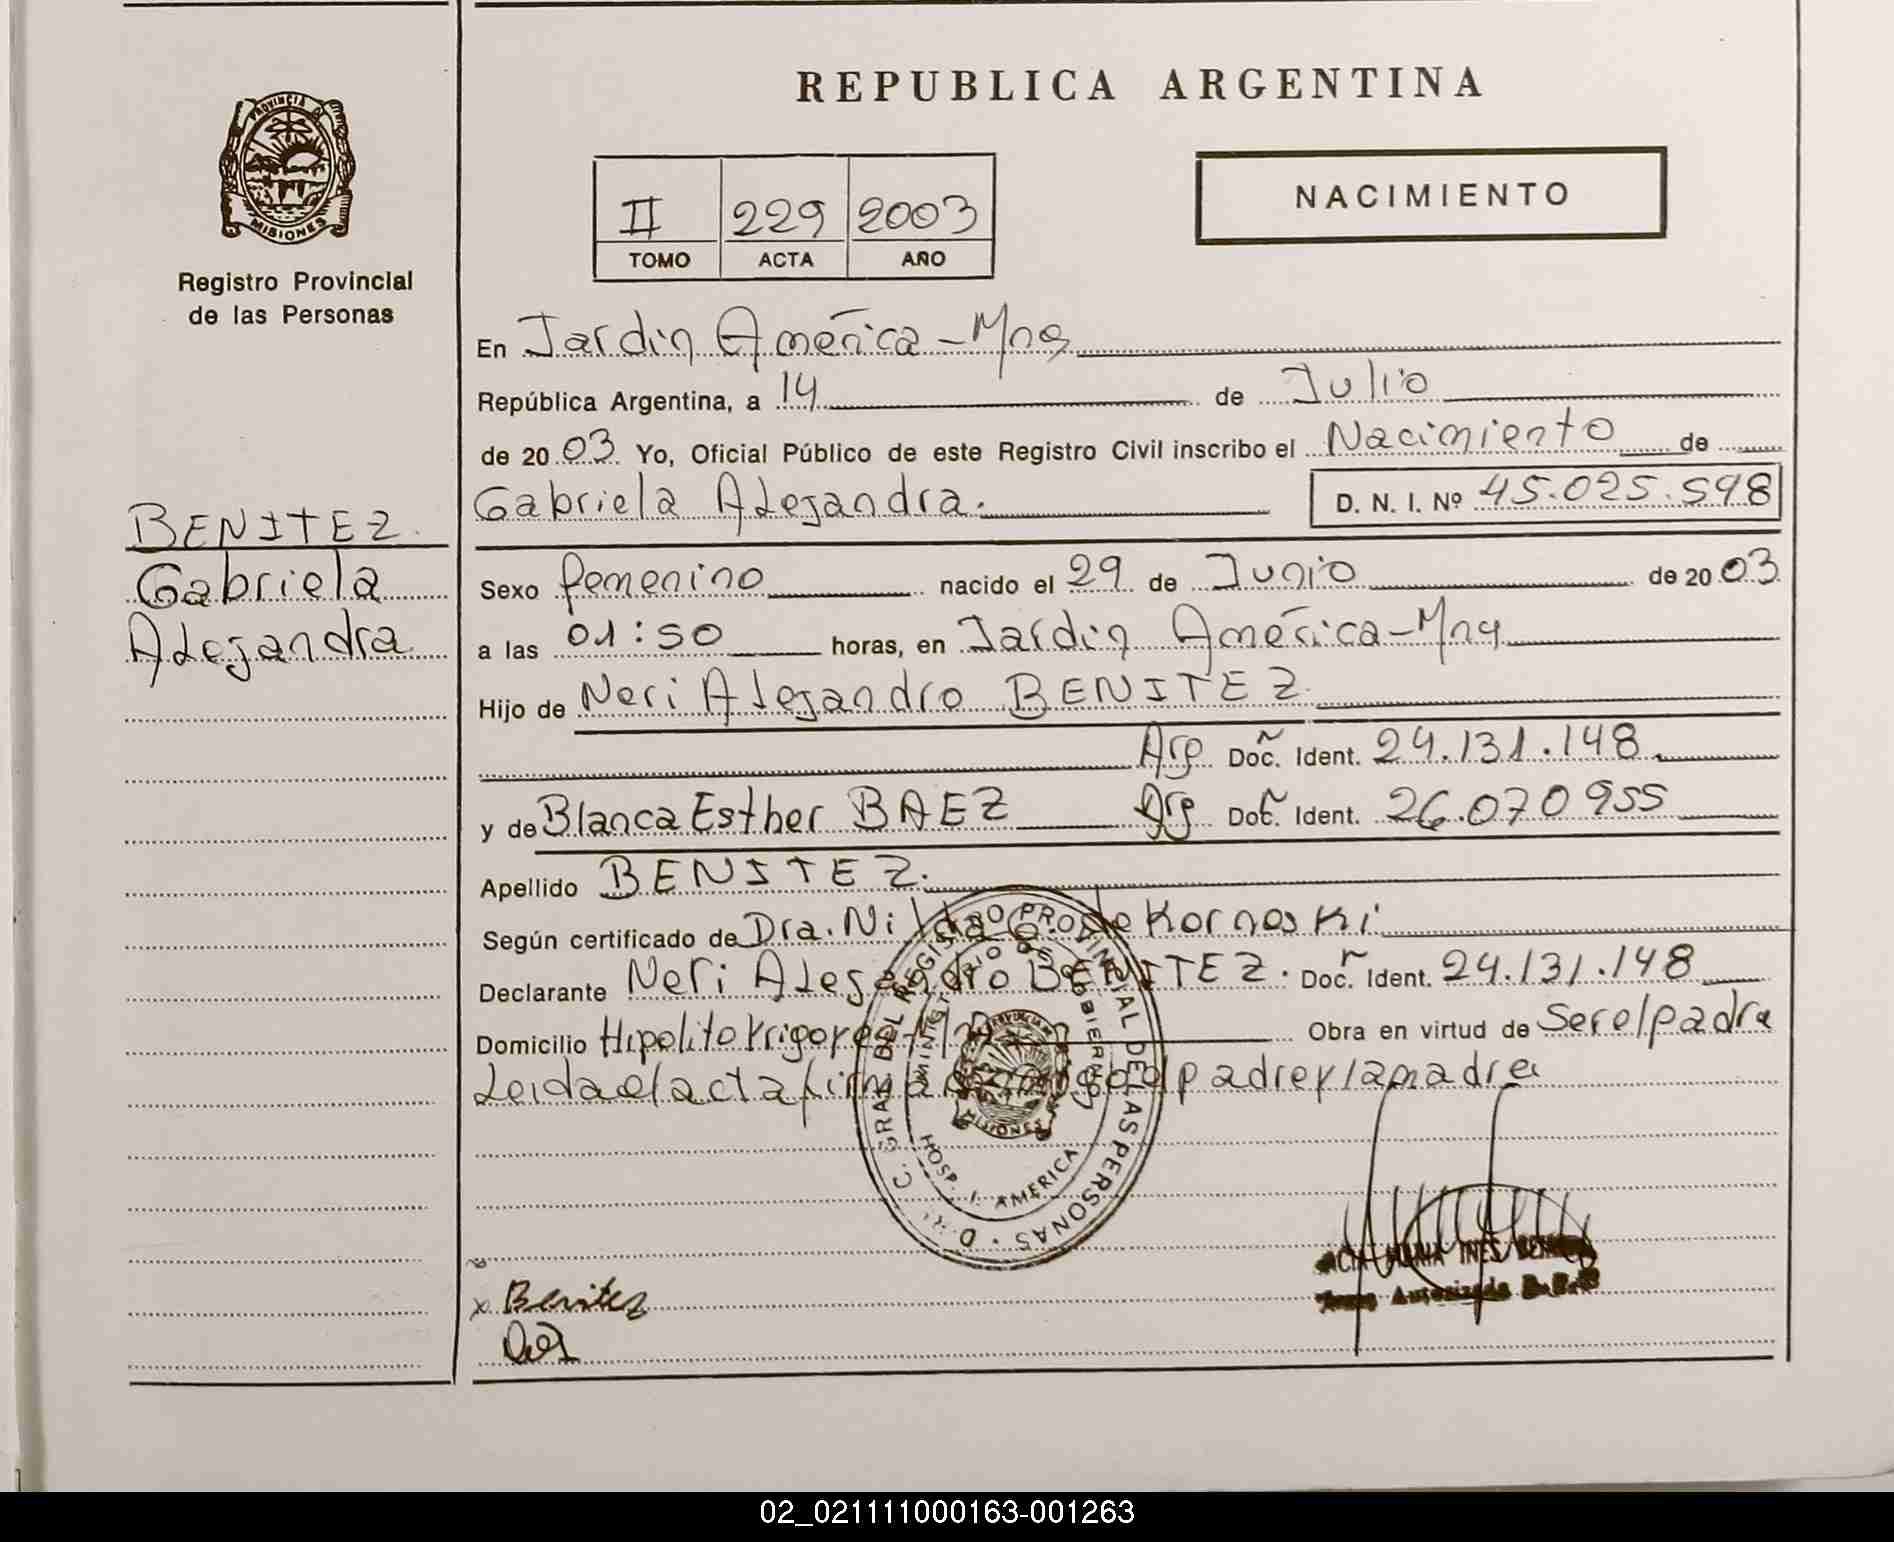 REPUBLICA ARGENTINA
PROVINCIA DE
MISIONES
Registro Provincial
de las Personas
II 229 2003
TOMO ACTA AÑO
NACIMIENTO
En Jardin América - Mns
República Argentina, a 14 de Julio
de 2003 Yo, Oficial Público de este Registro Civil inscribo el Nacimiento de
Gabriela Alejandra. D. N. I. Nº 45.025.598
BENITEZ.
Gabriela
Alejandra
Sexo femenino nacido el 29 de Junio de 2003
a las 01:50 horas, en Jardin América - Mns
Hijo de Neri Alejandro BENITEZ.
Arg Doc. Ident. 24.131.148
y de Blanca Esther BAEZ Arg Doc. Ident. 26.070955
Apellido BENITEZ.
Según certificado de Dra. Nilda G. de Kornoski
Declarante Neri Alejandro BENITEZ. Doc. Ident. 24.131.148
Domicilio Hipolito Yrigoyen Obra en virtud de Ser el padre
Leida el acta firman el padre y la madre
DEL REGISTRO PROVINCIAL DE LAS PERSONAS
MINISTERIO DE GOBIERNO
HOSP. J. AMERICA
MISIONES
MARIA INES
Autorizada
x Benitez
02_021111000163-001263